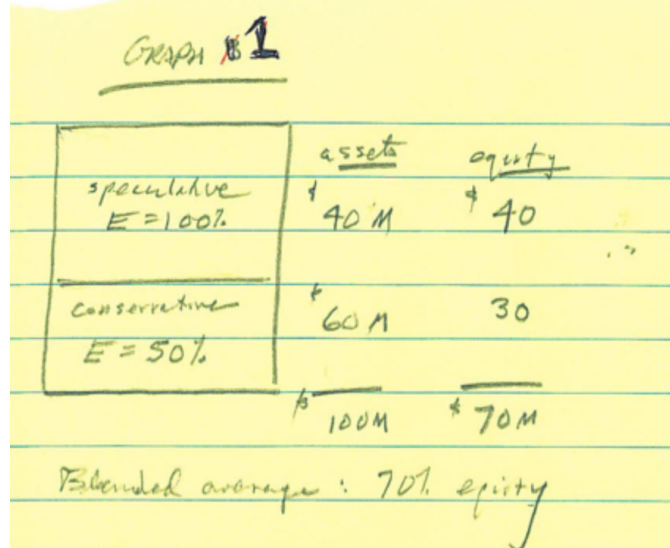 GRAPH 1
assets equity
speculative
E = 100% $ 40 M $ 40
conservative $ 60 M 30
E = 50%
$ 100M $ 70M
Blended average : 70% equity